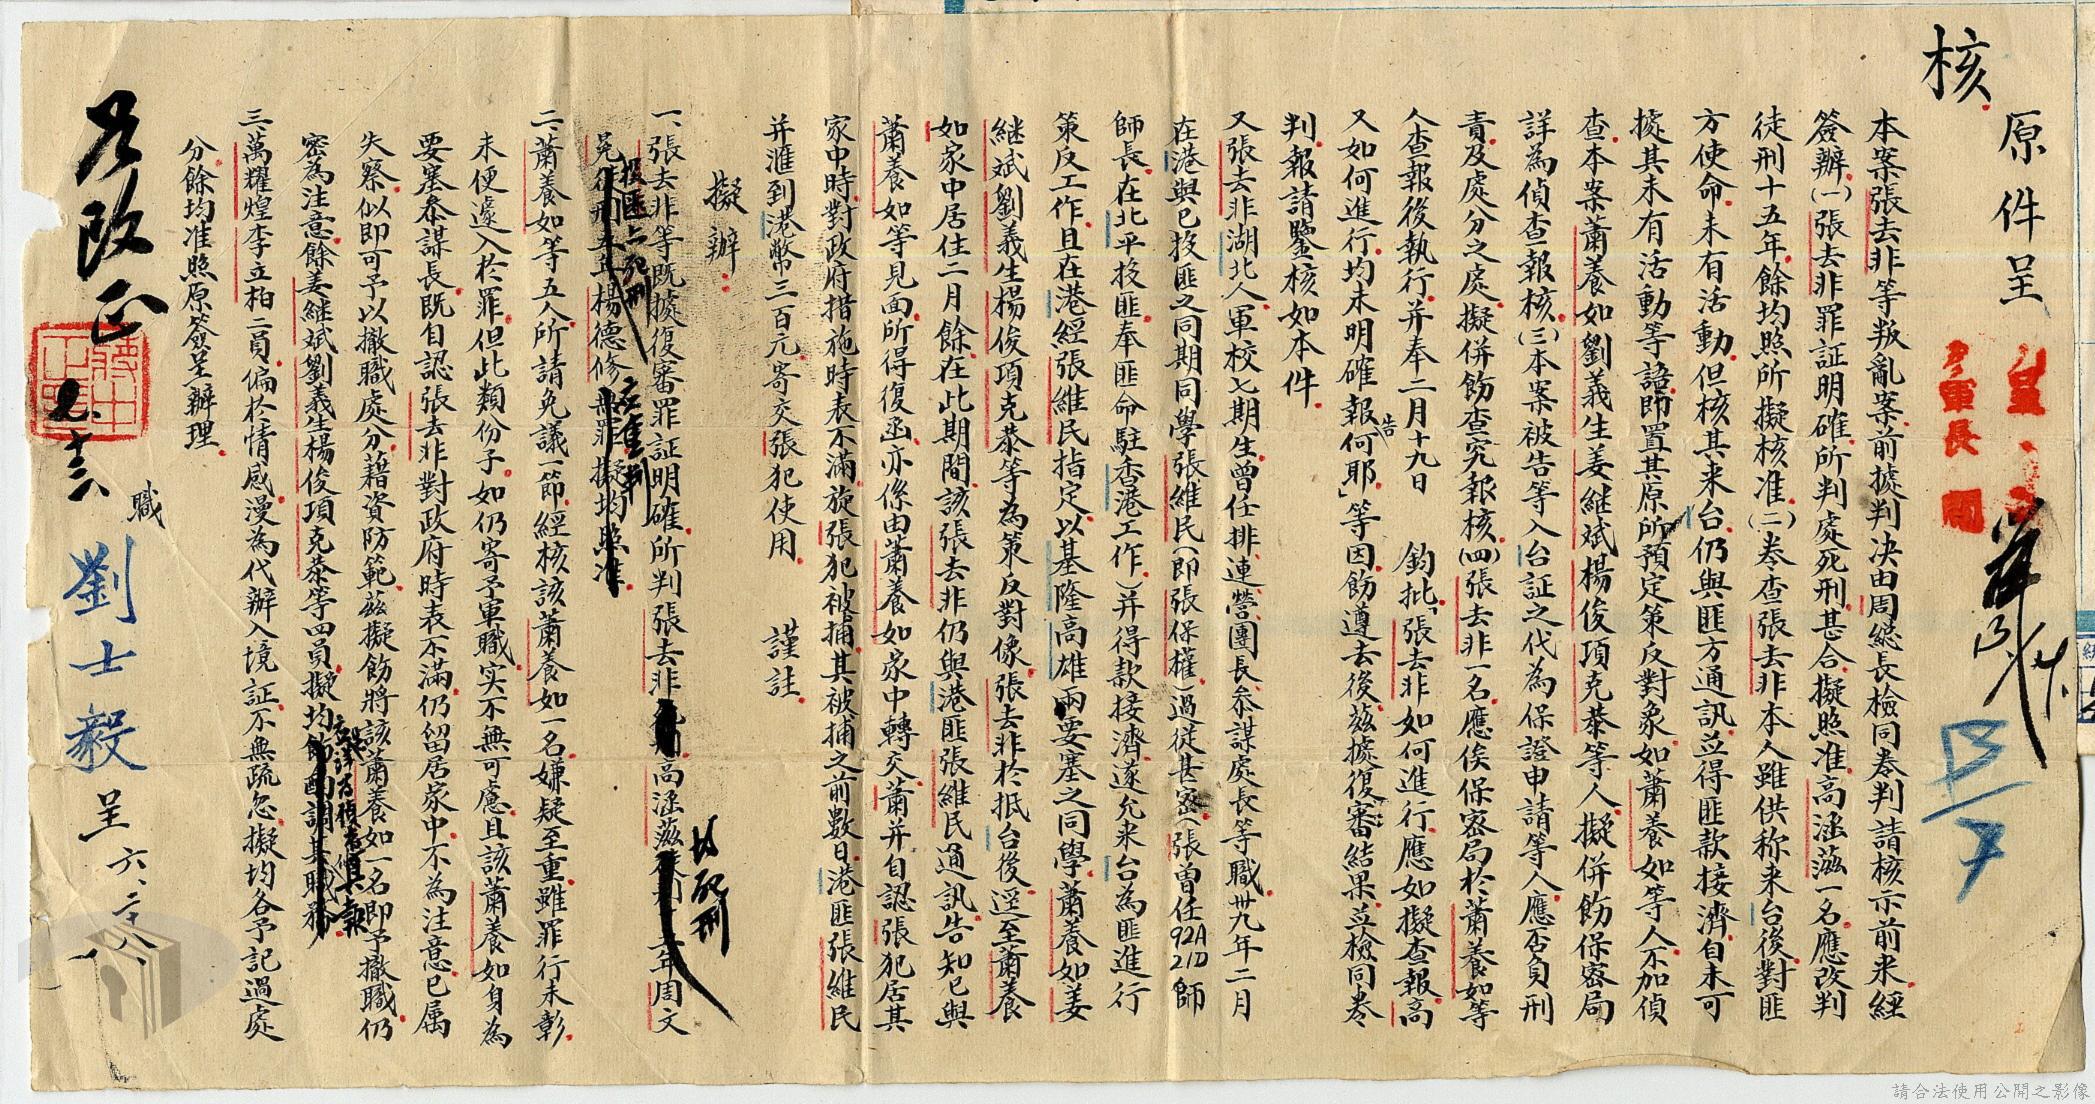 核
原件呈
呈
軍長閱
本案張去非等叛亂案前據判决由周總長檢同卷判請核示前来經
簽辦㈠張去非罪証明確所判處死刑甚合擬照准高涵滋一名應改判
徒刑十五年餘均照所擬核准㈡卷查張去非本人雖供称来台後對匪
方使命未有活動但核其来台仍與匪方通訊並得匪款接濟自未可
據其未有活動等語即置其原所預定策反對象如蕭養如等人不加偵
查本案蕭養如劉義生姜継斌楊俊項克恭等人擬併飭保密局
詳為偵查報核㈢本案被告等入台証之代為保證申請等人應否負刑
責及處分之處擬併飭查究報核㈣張去非一名應俟保密局於蕭養如等
人查報後執行并奉二月十九日　鈞批「張去非如何進行應如擬查報高
又如何進行均未明確報告何耶」等因飭遵去後茲據復審結果並檢同卷
判報請鑒核如本件
又張去非湖北人軍校七期生曾任排連營團長叅謀處長等職卅九年二月
在港與已投匪之同期同學張維民（即張保權）過從甚密（張曾任92A21D師
師長在北平投匪奉匪命駐香港工作）并得款接濟遂允来台為匪進行
策反工作且在港經張維民指定以基隆高雄兩要塞之同學蕭養如姜
継斌劉義生楊俊項克恭等為策反對像張去非於抵台後逕至蕭養
如家中居住二月餘在此期間該張去非仍與港匪張維民通訊告知已與
蕭養如等見面所得復函亦係由蕭養如家中轉交蕭并自認張犯居其
家中時對政府措施時表不滿旋張犯被捕其被捕之前數日港匪張維民
并滙到港幣三百元寄交張犯使用　謹註
擬辦：
一、張去非等既據復審罪証明確所判張去非死刑高涵滋徒刑十五年周文
均死刑
楊德修無罪擬均照准
二、蕭養如等五人所請免議一節經核該蕭養如一名嫌疑至重雖罪行未彰
未便遽入於罪但此類份子如仍寄予軍職实不無可慮且該蕭養如身為
要塞叅謀長既自認張去非對政府時表不滿仍留居家中不為注意已属
失察似即可予以撤職處分藉資防範茲擬飭將該蕭養如一名即予撤職仍
密為注意餘姜継斌劉義生楊俊項克恭等四員擬均飭酌調其職務
三、萬耀煌李立柏二員偏於情感漫為代辦入境証不無疏忽擬均各予記過處
分餘均准照原簽呈辦理
職劉士毅呈六、二十八、
改正
七、十三
請合法使用公開之影像